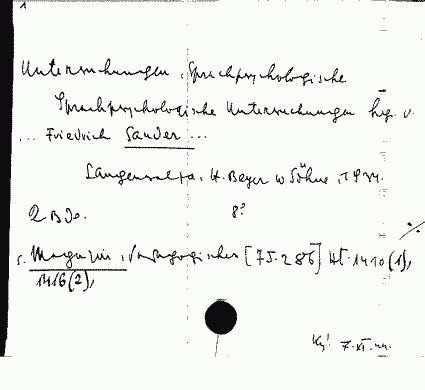 1
Untersuchungen, Sprachpsychologische
Sprachpsychologische Untersuchungen hrg. v.
... Friedrich Sander ...
Langensalza. H. Beyer u Söhne, 1934.
2 Bde. 8°
s. Magazin, Pädagogisches [75.286] Hft. 1410(1),
1416(2),
7.XI.44.